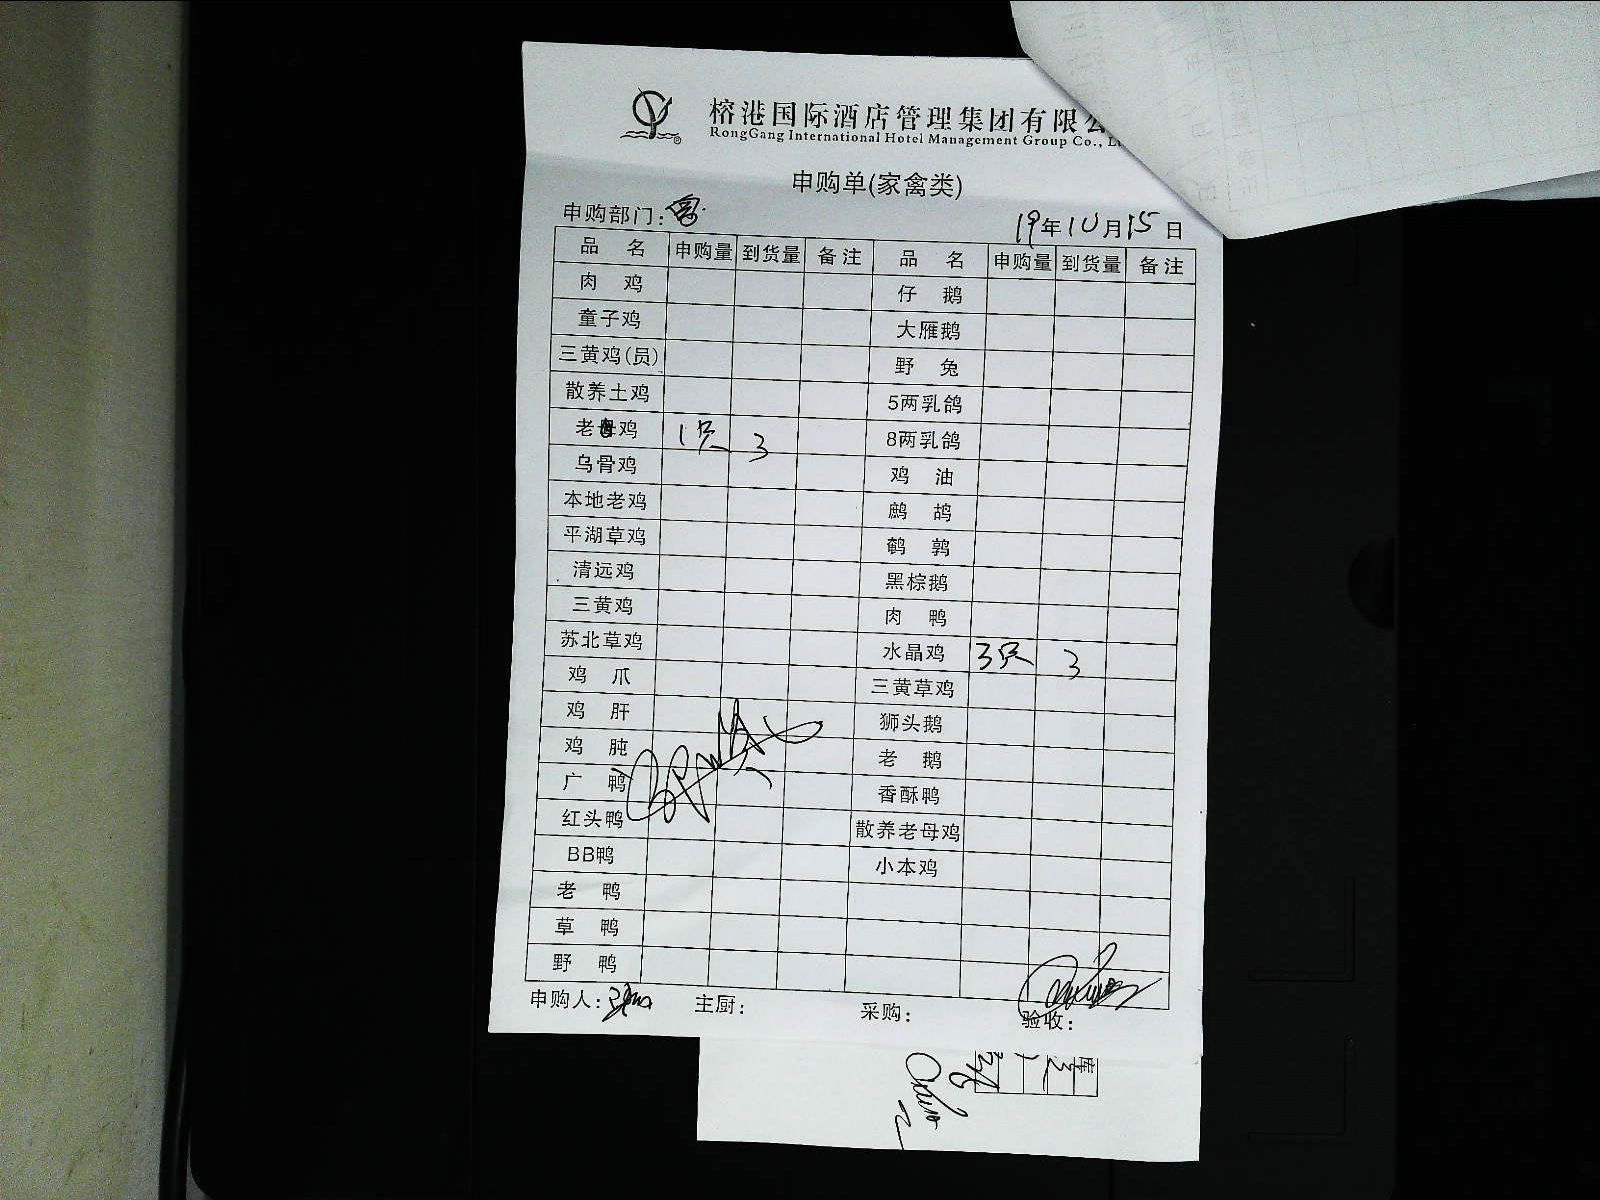 榕港国际酒店管理集团有限公
RongGang International Hotel Management Group Co., L
申购单(家禽类)
申购部门:
19年10月15日
品 名 申购量 到货量 备注 品 名 申购量 到货量 备注
肉 鸡 仔 鹅
童子鸡 大雁鹅
三黄鸡(员) 野 兔
散养土鸡 5两乳鸽
老母鸡 1只 3 8两乳鸽
乌骨鸡 鸡 油
本地老鸡 鹧 鸪
平湖草鸡 鹌 鹑
清远鸡 黑棕鹅
三黄鸡 肉 鸭
苏北草鸡 水晶鸡 3只 3
鸡 爪 三黄草鸡
鸡 肝 狮头鹅
鸡 肫 老 鹅
广 鸭 香酥鸭
红头鸭 散养老母鸡
BB鸭 小本鸡
老 鸭
草 鸭
野 鸭
申购人: 主厨: 采购: 验收: